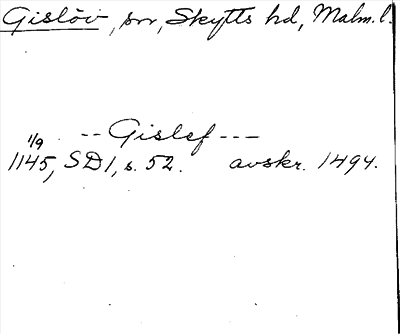 Gislöv, sn, Skytts hd, Malm. l.
-- Gislef ---
1/9
1145, SD1, s. 52. avskr. 1494.